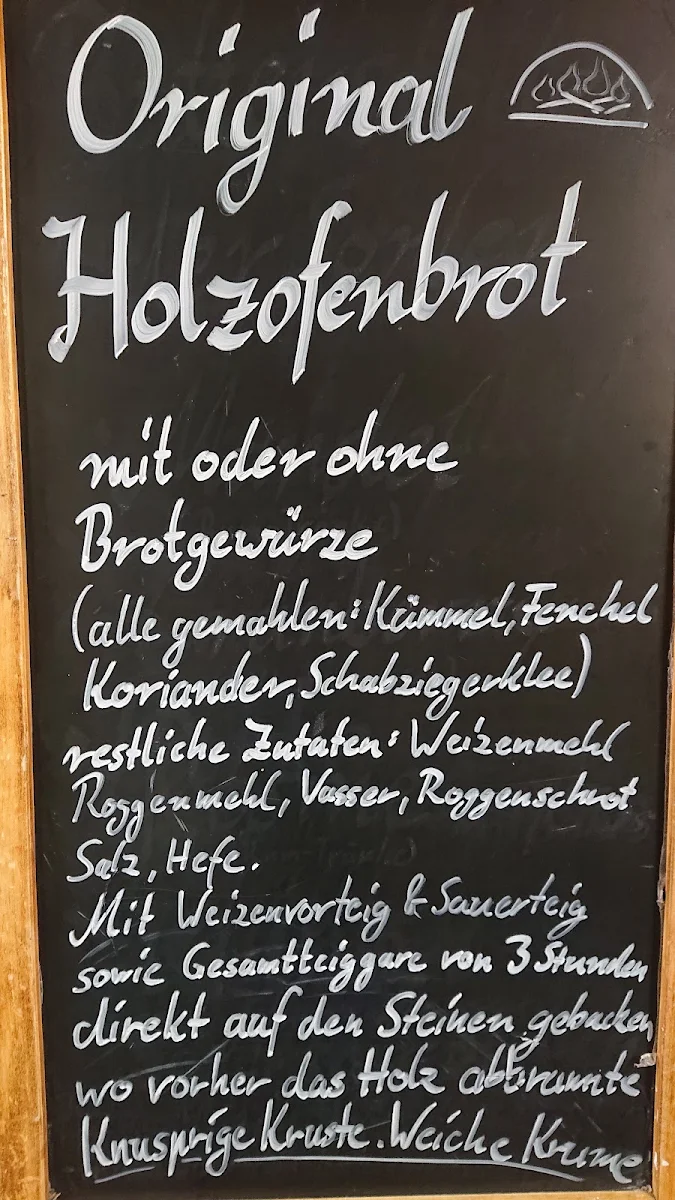 Original
Holzofenbrot
mit oder ohne
Brotgewürze
(alle gemahlen: Kümmel, Fenchel
Koriander, Schabziegerklee)
restliche Zutaten: Weizenmehl
Roggenmehl, Wasser, Roggenschrot
Salz, Hefe.
Mit Weizenvorteig & Sauerteig
sowie Gesamtteiggare von 3 Stunden
direkt auf den Steinen gebacken,
wo vorher das Holz abbrannte
Knusprige Kruste. Weiche Krume